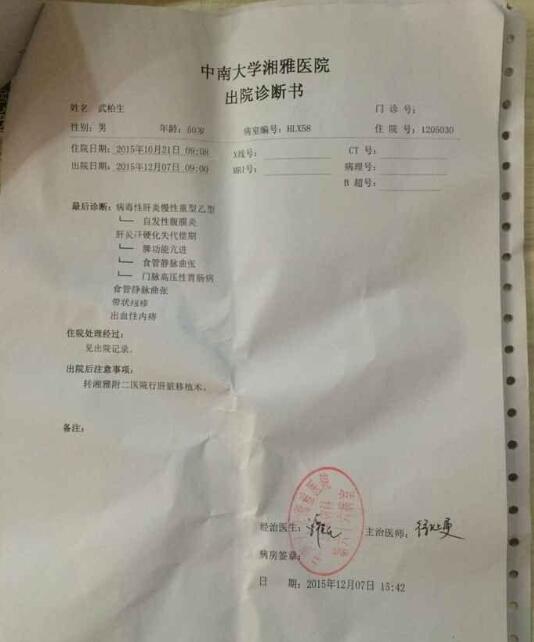 中南大学湘雅医院
出院诊断书
姓名 武柏生 门诊号:
性别:男 年龄:60岁 病室编号:HLX58 住院号:1205030
住院日期:2015年10月21日 09:08 X线号: CT号:
出院日期:2015年12月07日 09:00 MRI号: 病理号:
B超号:
最后诊断:病毒性肝炎慢性重型乙型
自发性腹膜炎
肝炎肝硬化失代偿期
脾功能亢进
食管静脉曲张
门脉高压性胃肠病
食管静脉曲张
带状疱疹
出血性内痔
住院处理经过:
见出院记录。
出院后注意事项:
转湘雅附二医院行肝脏移植术。
备注:
经治医生: 主治医师:
病房签章:
日期:2015年12月07日 15:42